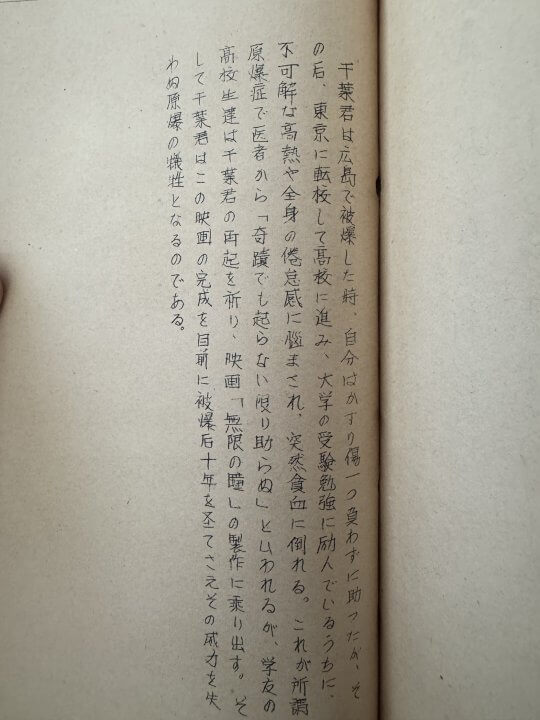 千葉君は広島で被爆した時、自分はかすり傷一つ負わずに助ったが、そ
の后、東京に転校して高校に進み、大学の受験勉強に励んでいるうちに、
不可解な高熱や全身の倦怠感に悩まされ、突然貧血に倒れる。これが所謂
原爆症で医者から「奇蹟でも起らない限り助らぬ」と云われるが、学友の
高校生達は千葉君の再起を祈り、映画「無限の瞳」の製作に乗り出す。そ
して千葉君はこの映画の完成を目前に被爆后十年を圣てさえその威力を失
わぬ原爆の犠牲となるのである。